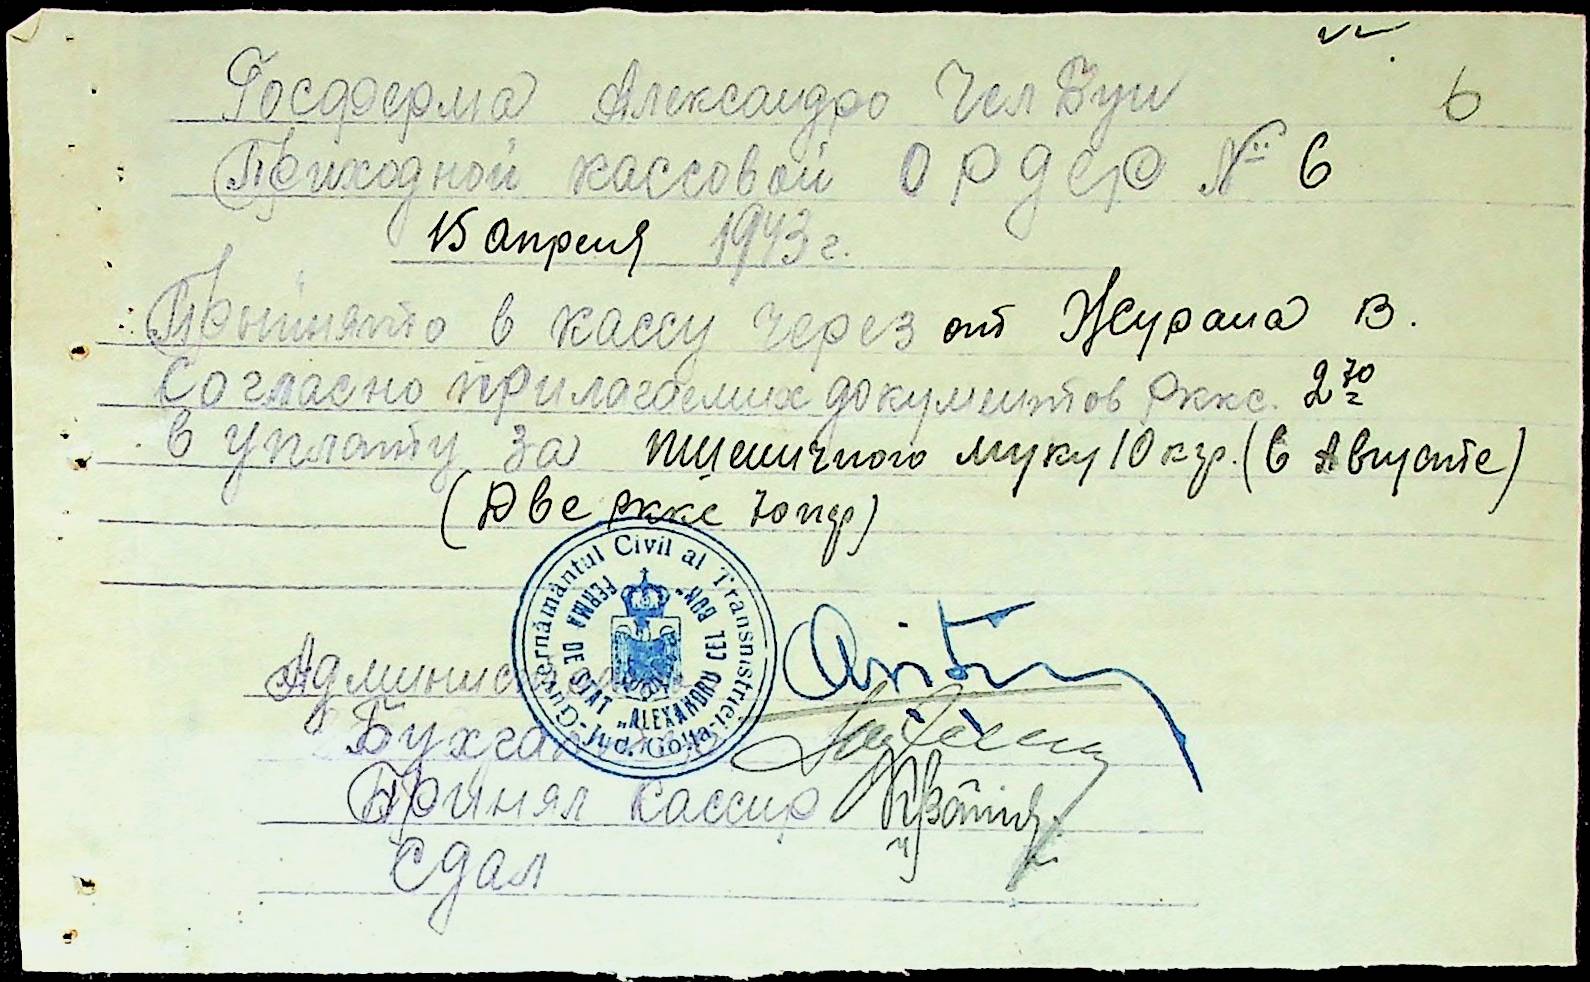 6
Госферма Александро Чел Бун
Приходной кассовой ОРДЕР № 6
15 апреля 1943 г.
Прыинято в кассу через от Журана В.
Согласно прилагаемих документов ркке. 2 70
в уплату за пшеничного муку 10 кгр. (в Августе)
(Две ркке 70 пф)
Guvernământul Civil al Transnistriei
Jud. Golta
FERMA DE STAT „ALEXANDRU CEL BUN"
Админис
Бухга
Принял кассир
Сдал